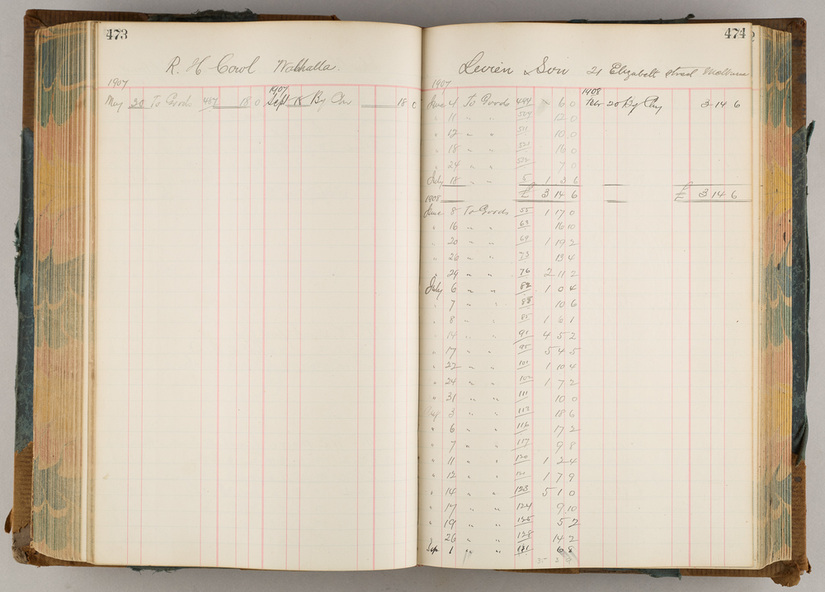 473
R. H. Cowl Walhalla
1907
May 20 To Goods 487 18 0
1907
Sept 18 By Chq 18 0
474
Levien & Son 21 Elizabeth Street Melbourne
1907
June 4 To Goods 6 0
11 " " 12 0
12 " " 10 0
18 " " 10 0
24 " " 7 0
July 18 " " 5 1 3 6
£ 3 14 6
1908
Mar 20 By Chq 3 14 6
£ 3 14 6
1908
June 8 To Goods 55 1 17 0
" 16 " " 10 10
" 20 " " 1 19 2
" 26 " " 73 13 4
" 29 " " 76 2 11 2
July 6 " " 82 1 0 4
" 7 " " 88 10 6
" 8 " " 85 1 6 1
" 14 " " 91 4 5 2
" 17 " " 95 5 4 5
" 22 " " 101 1 10 4
" 24 " " 102 1 7 2
" 31 " " 111 10 0
Aug 3 " " 113 18 6
" 6 " " 116 17 2
" 7 " " 117 9 8
" 11 " " 120 1 2 4
" 12 " " 1 7 9
" 14 " " 123 5 1 0
" 17 " " 124 9 10
" 19 " " 125 5 2
" 26 " " 128 14 2
Sep 1 " " 131 6 8